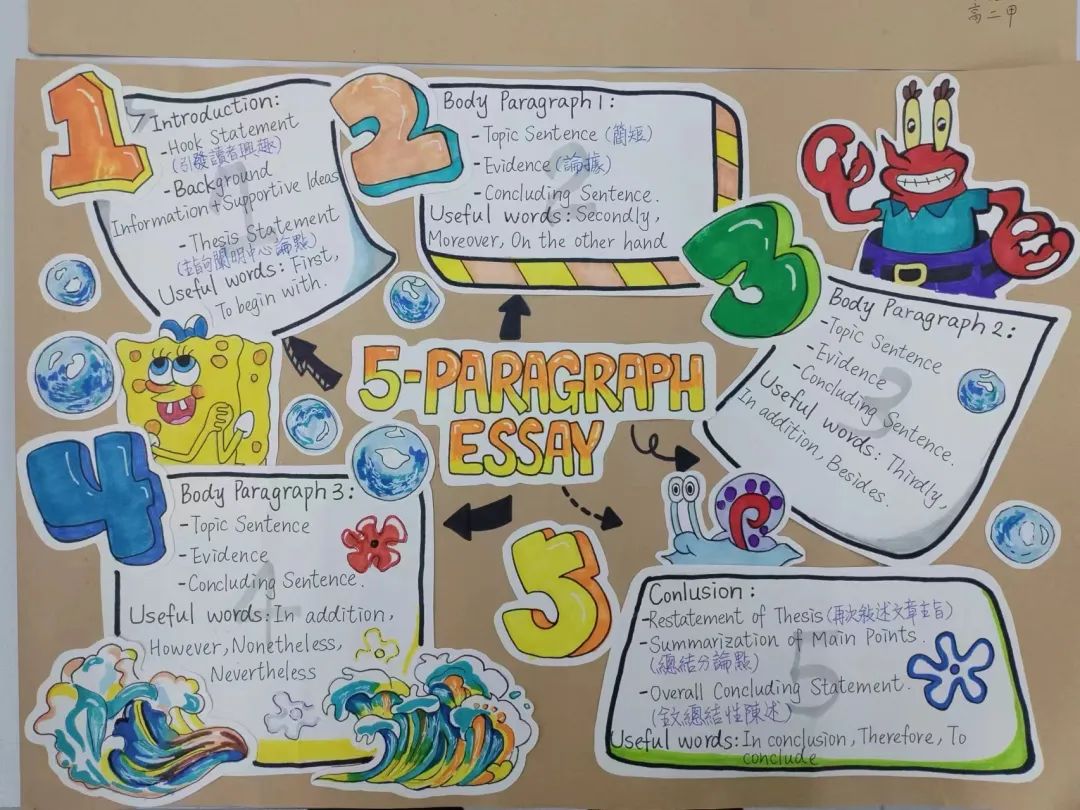 高二甲
1
Introduction:
-Hook Statement
(引發讀者興趣)
-Background
Information+Supportive Ideas
-Thesis Statement
(主旨闡明中心論點)
Useful words: First,
To begin with.
2
Body Paragraph 1:
-Topic Sentence (簡短)
-Evidence (論據)
-Concluding Sentence.
Useful words: Secondly,
Moreover, On the other hand
3
Body Paragraph 2:
-Topic Sentence
-Evidence
-Concluding Sentence.
Useful words: Thirdly,
In addition, Besides.
5-PARAGRAPH
ESSAY
4
Body Paragraph 3:
-Topic Sentence
-Evidence
-Concluding Sentence.
Useful words: In addition,
However, Nonetheless,
Nevertheless
5
Conlusion:
-Restatement of Thesis (再次敘述文章主旨)
-Summarization of Main Points.
(總結分論點)
-Overall Concluding Statement.
(全文總結性陳述)
Useful words: In conclusion, Therefore, To
conclude